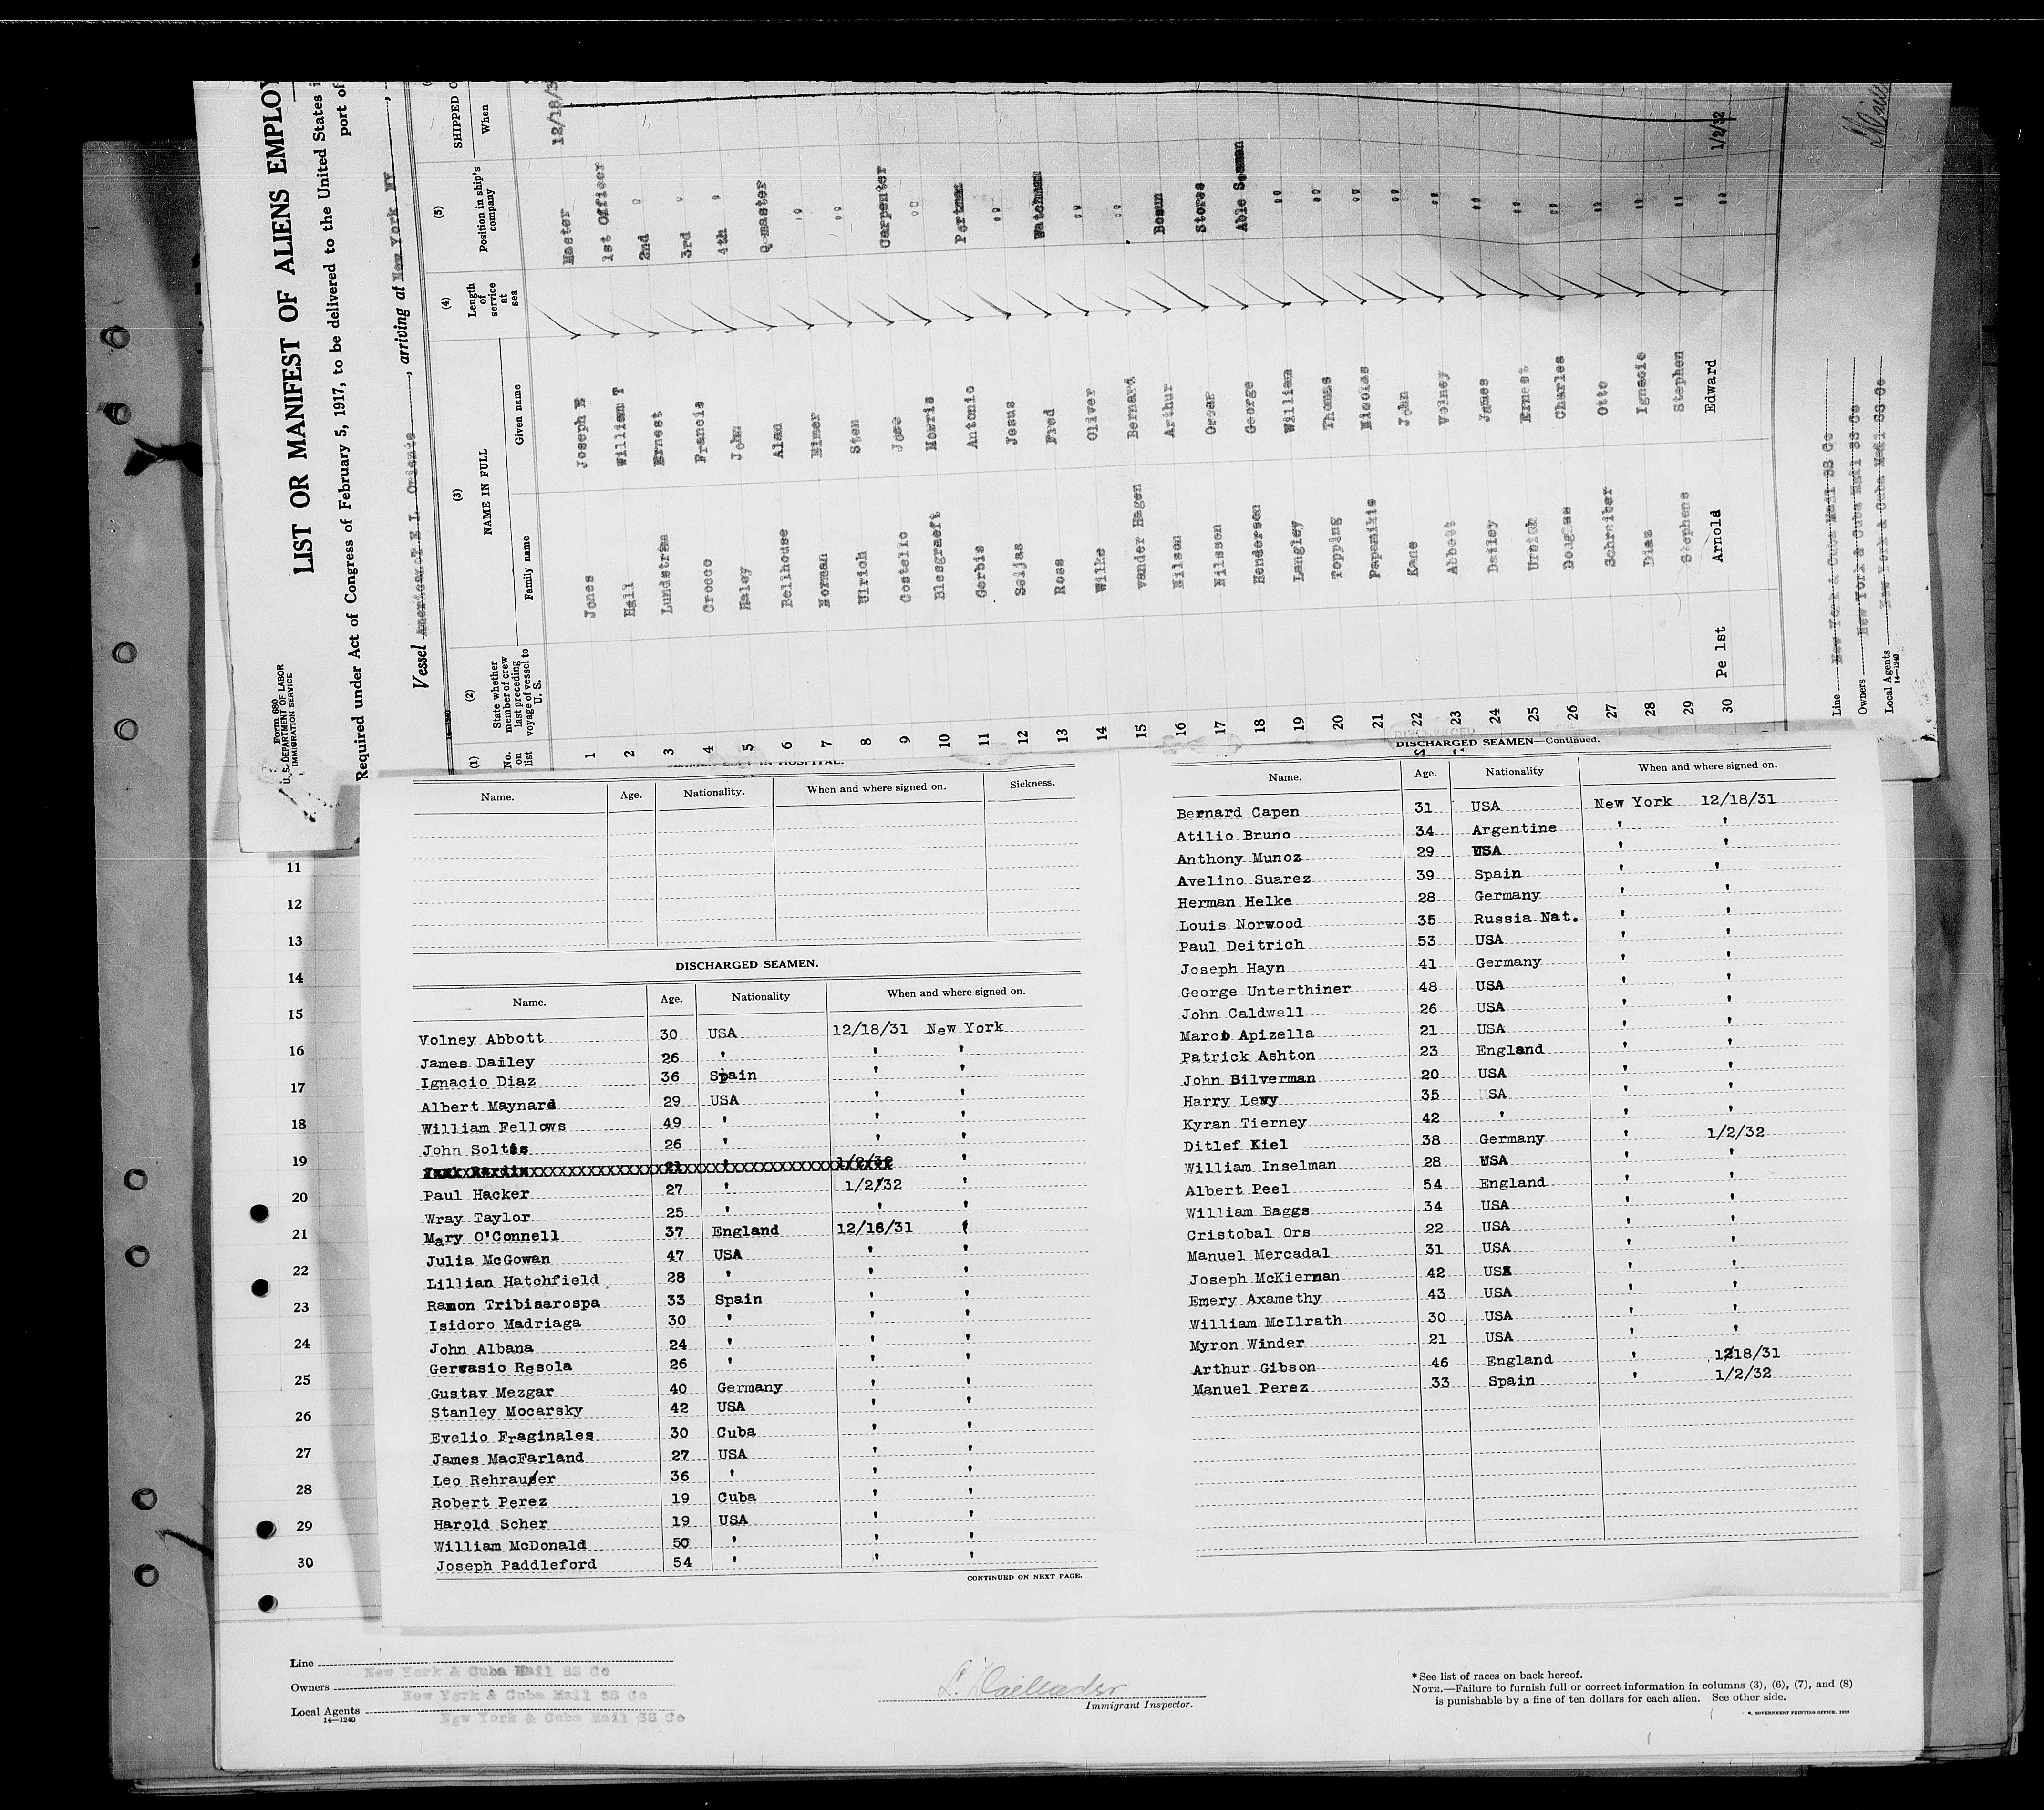 Form 680
U. S. DEPARTMENT OF LABOR
IMMIGRATION SERVICE
LIST OR MANIFEST OF ALIENS EMPLOY
Required under Act of Congress of February 5, 1917, to be delivered to the United States i
port of
Vessel Oriente, arriving at New York NY,
(1) No. on list
(2) State whether member of crew last preceding voyage of vessel to U. S.
(3) NAME IN FULL
Family name Given name
(4) Length of service at sea
(5) Position in ship's company
SHIPPED O
When
1 Jones Joseph E Master 12/18/3
2 Hall William T 1st Officer
3 Lundstrom Ernest 2nd "
4 Crocco Francis 3rd "
5 Haley John 4th "
6 Bellhouse Alan Q-master
7 Norman Elmer "
8 Ulrich Sten "
9 Costello Jose Carpenter
10 Blesgraeft Morris "
11 Gerbis Antonio Portman
12 Seijas Jesus "
13 Ross Fred Watchman
14 Wilke Oliver "
15 vander Hagen Bernard "
16 Nilson Arthur Bosun
17 Nilsson Oscar Stores
18 Henderson George Able Seaman
19 Langley William "
20 Topping Thomas "
21 Papamikis Nicolas "
22 Kane John "
23 Abbott Volney "
24 Dailey James "
25 Urbich Ernest "
26 Douglas Charles "
27 Schreiber Otto "
28 Diaz Ignacio "
29 Stephens Stephen "
30 Pe 1st Arnold Edward " 1/2/32
Line New York & Cuba Mail SS Co
Owners New York & Cuba Mail SS Co
Local Agents New York & Cuba Mail SS Co
14—1240
SEAMEN LEFT IN HOSPITAL.
Name. Age. Nationality. When and where signed on. Sickness.
DISCHARGED SEAMEN.
Name. Age. Nationality When and where signed on.
Volney Abbott 30 USA 12/18/31 New York
James Dailey 26 ' ' '
Ignacio Diaz 36 Spain ' '
Albert Maynard 29 USA ' '
William Fellows 49 ' ' '
John Soltis 26 ' ' '
21 ' 1/2/32 '
Paul Hacker 27 ' 1/2/32 '
Wray Taylor 25 ' ' '
Mary O'Connell 37 England 12/18/31 '
Julia McGowan 47 USA ' '
Lillian Hatchfield 28 ' ' '
Ramon Tribisarospa 33 Spain ' '
Isidoro Madriaga 30 ' ' '
John Albana 24 ' ' '
Gervasio Resola 26 ' ' '
Gustav Mezgar 40 Germany ' '
Stanley Mocarsky 42 USA ' '
Evelio Fraginales 30 Cuba ' '
James MacFarland 27 USA ' '
Leo Rehrauer 36 ' ' '
Robert Perez 19 Cuba ' '
Harold Scher 19 USA ' '
William McDonald 50 ' ' '
Joseph Paddleford 54 ' ' '
CONTINUED ON NEXT PAGE.
DISCHARGED SEAMEN—Continued.
Name. Age. Nationality When and where signed on.
Bernard Capen 31 USA New York 12/18/31
Atilio Bruno 34 Argentine ' '
Anthony Munoz 29 USA ' '
Avelino Suarez 39 Spain ' '
Herman Helke 28 Germany ' '
Louis Norwood 35 Russia Nat. ' '
Paul Deitrich 53 USA ' '
Joseph Hayn 41 Germany ' '
George Unterthiner 48 USA ' '
John Caldwell 26 USA ' '
Marco Apizella 21 USA ' '
Patrick Ashton 23 England ' '
John Silverman 20 USA ' '
Harry Levy 35 USA ' '
Kyran Tierney 42 ' ' '
Ditlef Kiel 38 Germany ' 1/2/32
William Inselman 28 USA ' '
Albert Peel 54 England ' '
William Baggs 34 USA ' '
Cristobal Ors 22 USA ' '
Manuel Mercadal 31 USA ' '
Joseph McKiernan 42 USA ' '
Emery Axamethy 43 USA ' '
William McIlrath 30 USA ' '
Myron Winder 21 USA ' '
Arthur Gibson 46 England ' 1218/31
Manuel Perez 33 Spain ' 1/2/32
11
12
13
14
15
16
17
18
19
20
21
22
23
24
25
26
27
28
29
30
Line New York & Cuba Mail SS Co
Owners New York & Cuba Mail SS Co
Local Agents New York & Cuba Mail SS Co
14—1240
Immigrant Inspector.
*See list of races on back hereof.
NOTE.—Failure to furnish full or correct information in columns (3), (6), (7), and (8)
is punishable by a fine of ten dollars for each alien. See other side.
GOVERNMENT PRINTING OFFICE: 1929